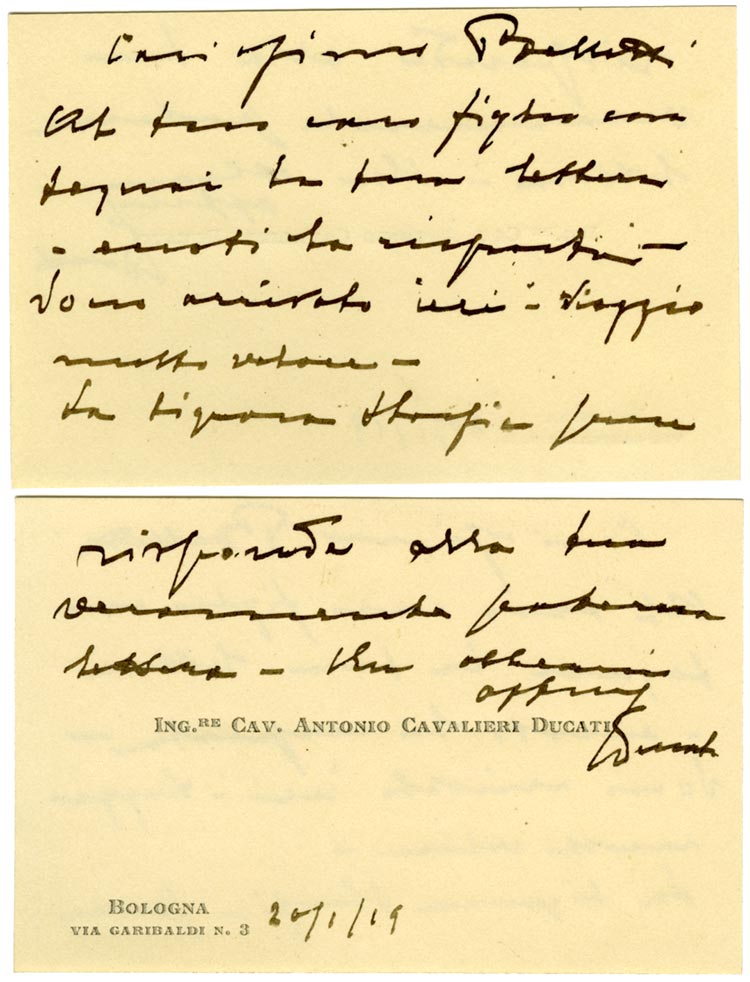 Carissimo
Al tuo caro figlio con
segnai la tua lettera
- la risposta -
Sono arrivato ieri - Viaggio
molto veloce -
La Signora pure
risponde alla tua
veramente paterna
lettera - Un abbraccio
Ducati
ING.RE CAV. ANTONIO CAVALIERI DUCATI
BOLOGNA
VIA GARIBALDI N. 3
20/1/19